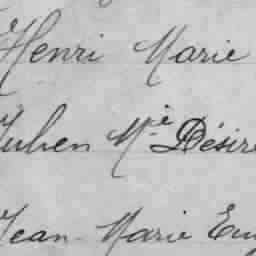 Henri Marie
Julien Mie Désiré
Jean Marie